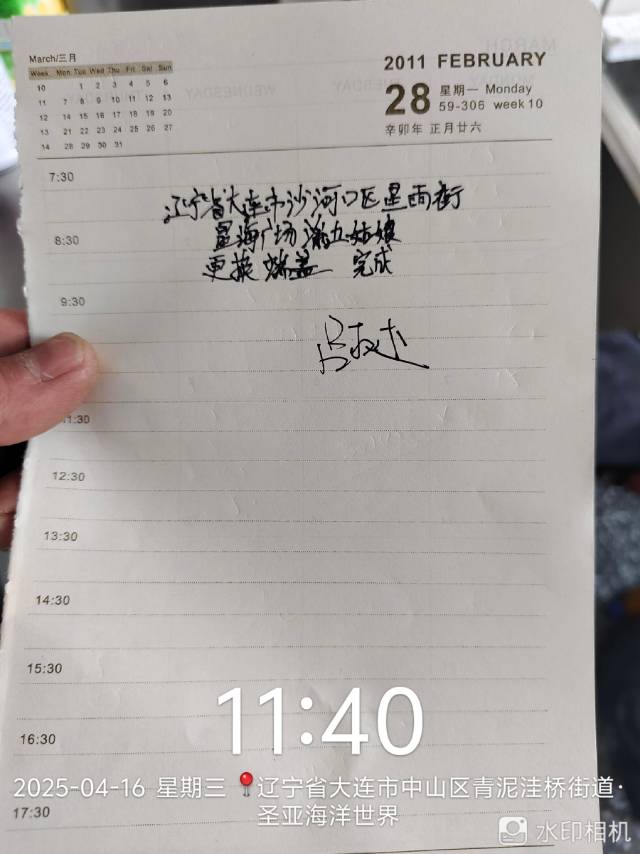 March/三月
Week Mon Tue Wed Thu Fri Sat Sun
10 1 2 3 4 5 6
11 7 8 9 10 11 12 13
12 14 15 16 17 18 19 20
13 21 22 23 24 25 26 27
14 28 29 30 31
2011 FEBRUARY
28 星期一 Monday
59-306 week10
辛卯年 正月廿六
7:30
辽宁省大连市沙河口区星雨街
8:30
星海广场 五姑娘
更换 盖 完成
9:30
11:30
12:30
13:30
14:30
15:30
16:30
17:30
11:40
2025-04-16 星期三 辽宁省大连市中山区青泥洼桥街道·
圣亚海洋世界
水印相机